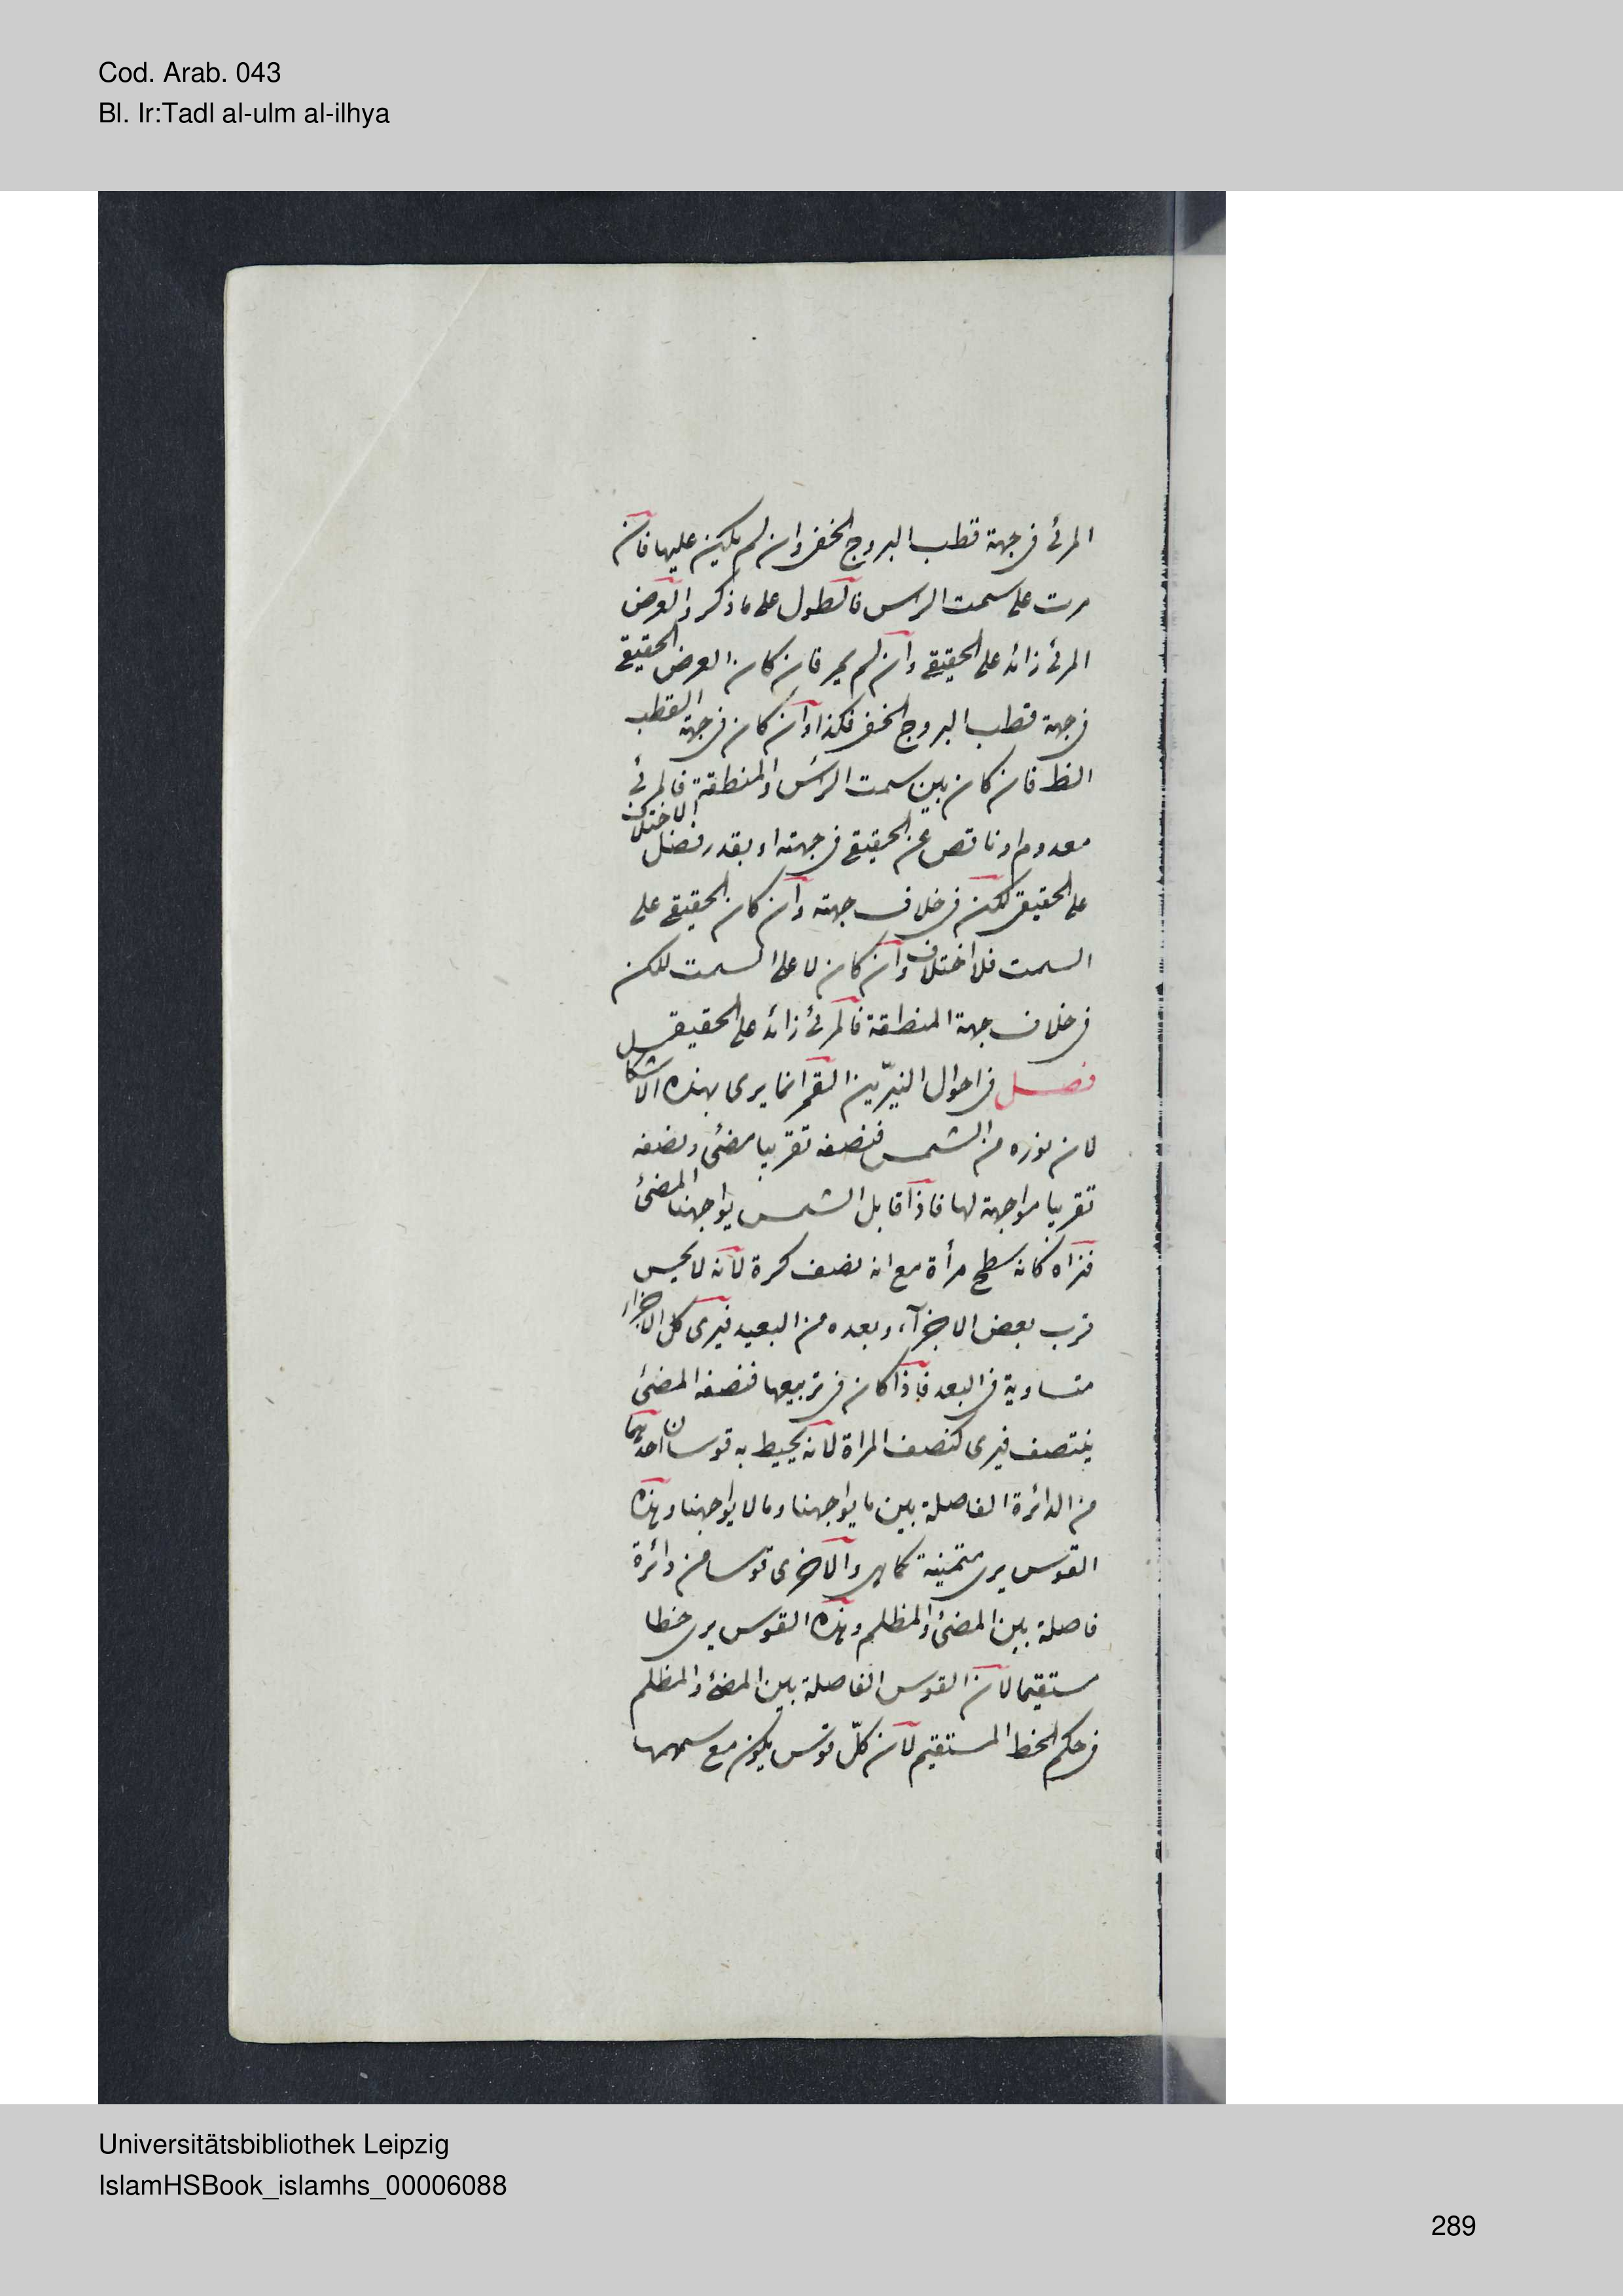 Cod. Arab. 043
Bl. Ir:Tadl al-ulm al-ilhya
المرئى فى جهة قطب البروج الخفى وان لم يكن عليها فان
مرت على سمت الراس فالطول على ما ذكر والعرض
المرئى زائد على الحقيقى وان لم يمر فان كان العرض الحقيقى
فى جهة قطب البروج الخفى فكذا وان كان فى جهة القطب
الظ فان كان بين سمت الراس والمنطقة فالمرئى
معدوم او ناقص عن الحقيقى فى جهته او بقدر فضل الاختلاف
على الحقيقى لكن فى خلاف جهته وان كان الحقيقى على
السمت فلا اختلاف وان كان لا على السمت لكن
فى خلاف جهة المنطقة فالمرئى زائد على الحقيقى
فصل فى احوال النيّرين القمر انما يرى بهذه الاشكال
لان نوره من الشمس فنصفه تقريبا مضئ ونصفه
تقريبا مواجهة لها فاذا قابل الشمس يواجهنا المضئ
فنراه كانه سطح مرأة مع انه نصف كرة لانه لا يحس
قرب بعض الاجزآء وبعده من البعيد فيرى كل الاجزاء
متساوية فى البعد فاذا كان فى تربيعها فنصفه المضئ
ينتصف فيرى كنصف المراة لانه يحيط به قوسان احديهما
من الدائرة الفاصلة بين ما يواجهنا وما لا يواجهنا وهذه
القوس يرى كما هى والاخرى قوسا من دائرة
فاصلة بين المضئ والمظلم وهذه القوس يرى خطا
مستقيما لان القوس الفاصلة بين المضئ والمظلم
فى حكم الخط المستقيم لان كلّ قوس يكون مع سهمها
Universitätsbibliothek Leipzig
IslamHSBook_islamhs_00006088
289